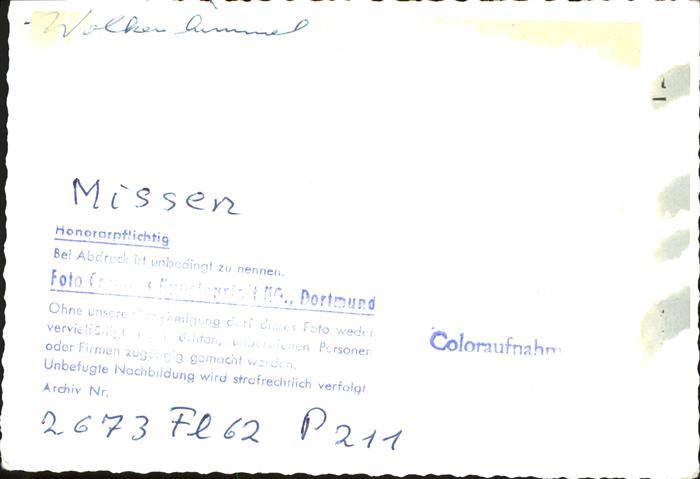 Wolkenhimmel
Missen
Honorarpflichtig
Bei Abdruck ist unbedingt zu nennen.
Foto KG., Dortmund
Ohne unsere Genehmigung darf dieses Foto weder
vervielfältigt noch dritten, unberufenen Personen
oder Firmen zugängig gemacht werden.
Unbefugte Nachbildung wird strafrechtlich verfolgt
Archiv Nr.
2673 Fl 62 P 211
Coloraufnahm